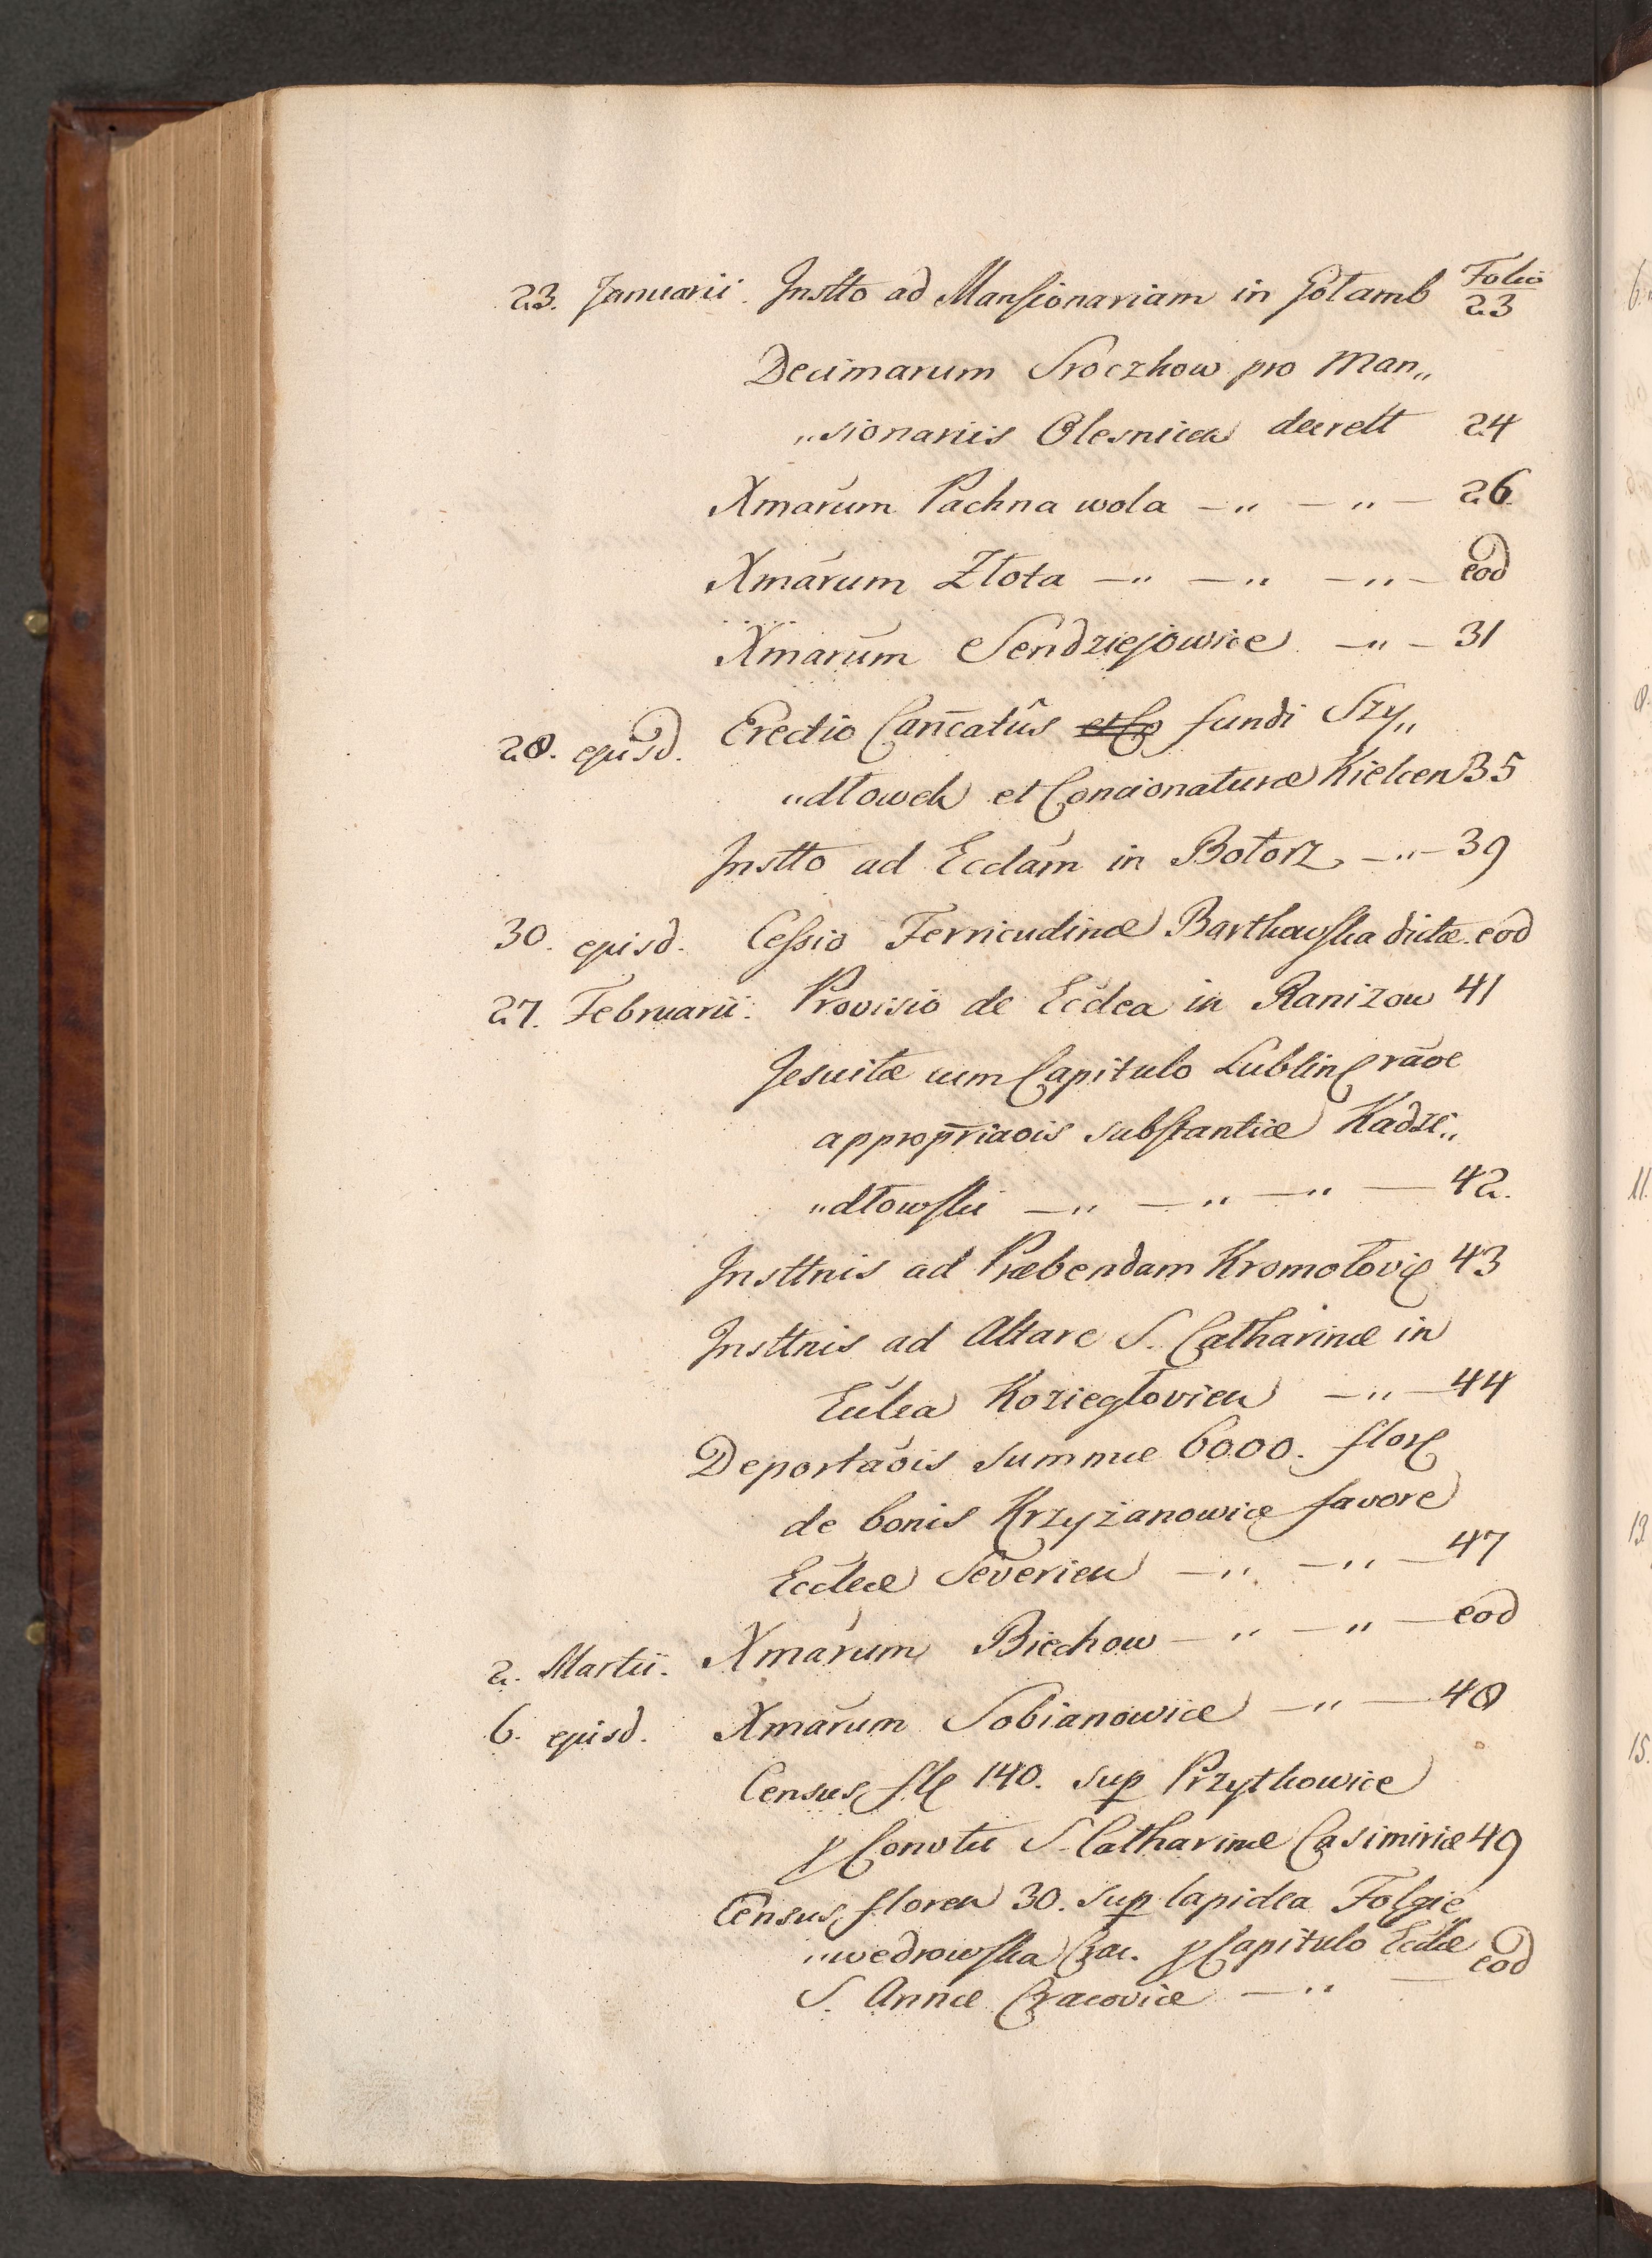 Folio
23. Januarii. Instto ad Mansionariam in Gołamb 23
Decimarum Sroczkow pro Man„
„sionariis Olesnicen decrett 24
Xmarum Pachna wola —„ —„— 26
Xmarum Złota —„ —„ —„— eod
Xmarum Sendziejowice —„— 31
28. ejusd. Erectio Cancatus fundi Szy„
„dłoweck et Concionaturæ Kielcen 35
Instto ad Ecclam in Botorz —„— 39
30. ejusd. Cessio Ferricudinæ Barthowska dictæ eod
27. Februarii. Provisio de Ecclea in Ranizow 41
Jesuitæ cum Capitulo Lublin raoe
appropriaois substantiæ Kadze„
„dłowski —„ —„ —„ — 42.
Insttnis ad Præbendam Kromołovi 43
Insttnis ad Altare S. Catharinæ in
Ecclea Koziegłovien —„— 44
Deportaois summæ 6000. flor
de bonis Krzyżanowice favore
Eccleæ Severien —„ —„— 47
2. Martii. Xmarum Biechow —„ —„— eod
6. ejusd. Xmarum Sobianowice —„— 48
Census fl 140. sup Przytkowice
p Convtu S. Catharinæ Casimiriæ 49
Census floren 30. sup lapidea Folgie
„wedrowska Crac. p Capitulo Ecclæ
S. Annæ Cracoviæ —„ — eod